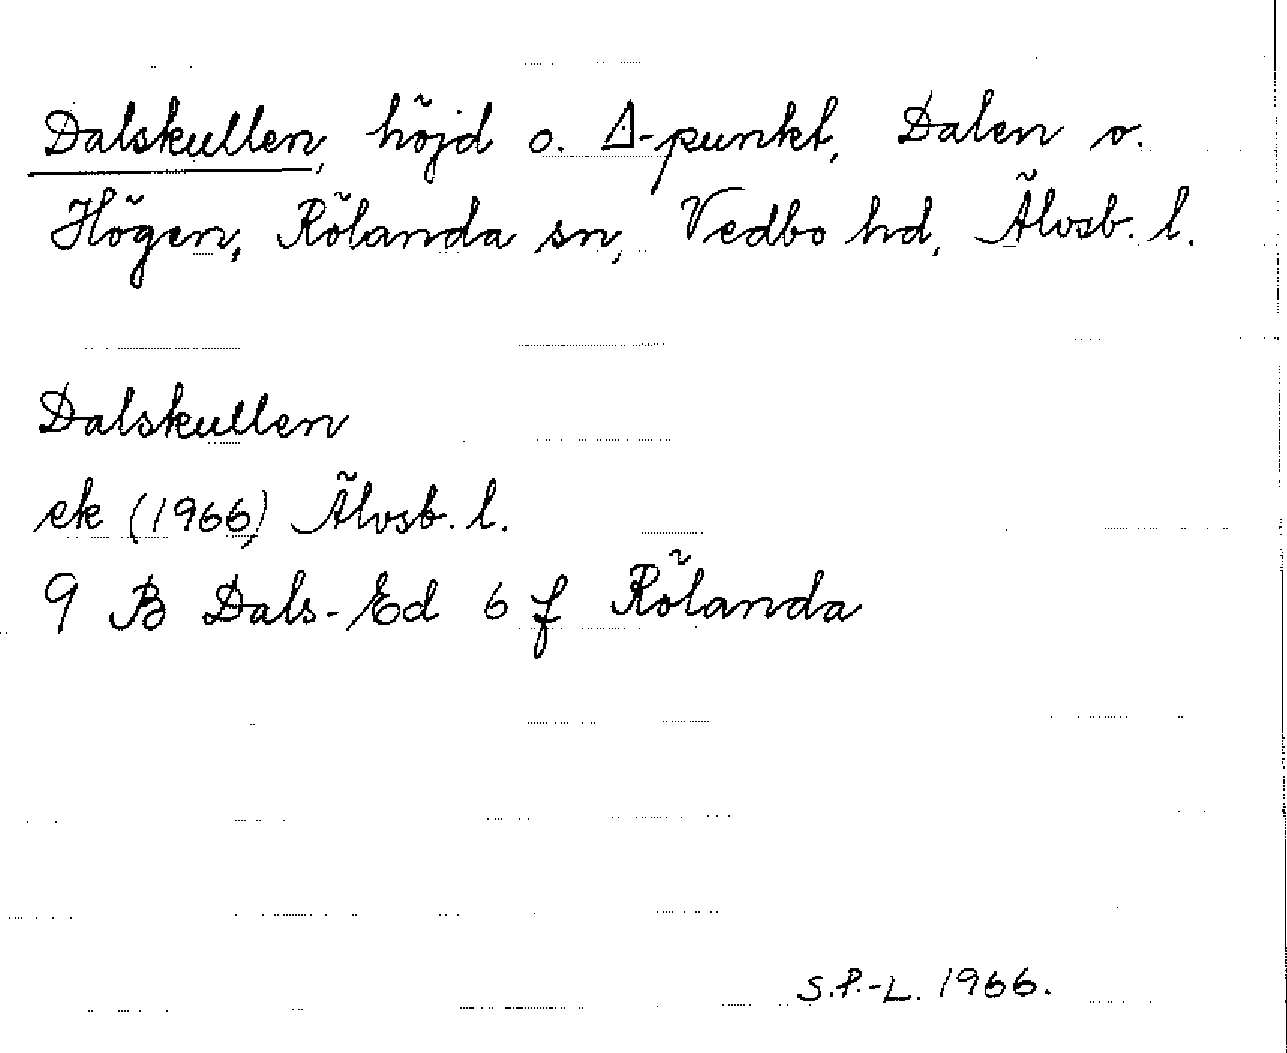 Dalskullen, höjd o. Δ-punkt, Dalen o.
Högen, Rölanda sn, Vedbo hd, Älvsb. l.
Dalskullen
ek (1966) Älvsb. l.
9 B Dals-Ed 6 f Rölanda
S.P.-L. 1966.